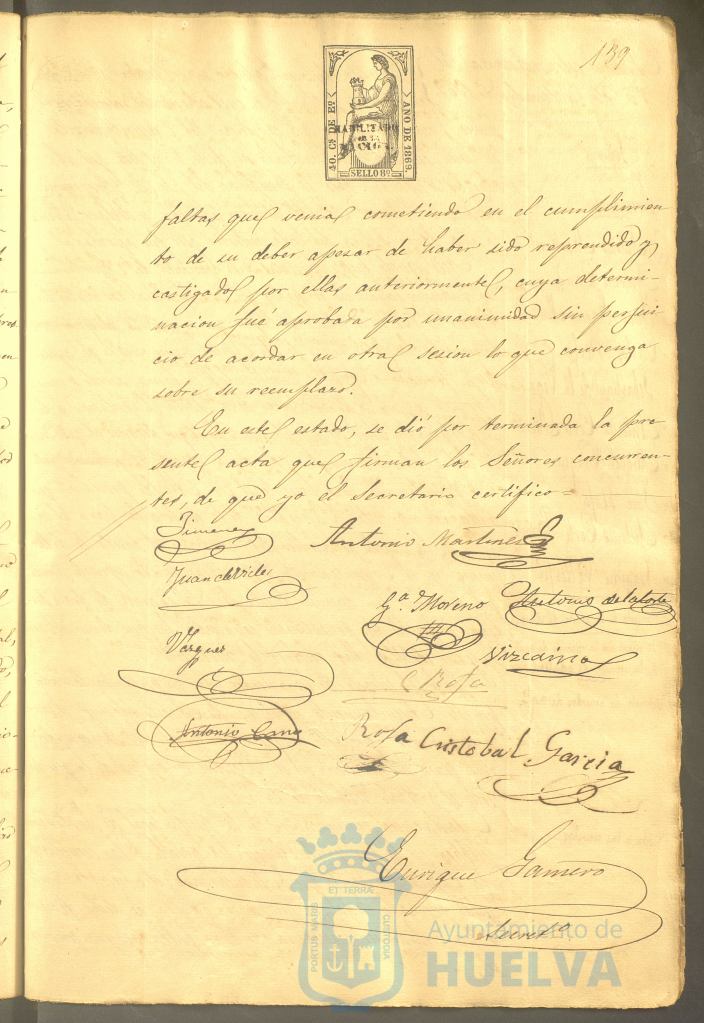 139
40. Cs DE Eº
AÑO DE 1869
HABILITADO
POR LA
NACION.
SELLO 8º
faltas que venia cometiendo en el cumplimien-
to de su deber apesar de haber sido reprendido y
castigado por ellas anteriormente, cuya determi-
nacion fué aprobada por unanimidad sin perjui-
cio de acordar en otra sesion lo que convenga
sobre su reemplazo.
En este estado, se dió por terminada la pre
sente acta que firman los Señores concurren-
tes, de que yo el Secretario certifico =
Jimenez
Antonio Martinez
Juan de
Gª Moreno
Antonio de la Corte
Vazquez
Vizcaino
Rofa
Antonio Cano
Rofa
Cristobal Garcia
Enrique Gamero
Secretº
ET TERRA
PORTUS MARIS
CUSTODIA
Ayuntamiento de
HUELVA